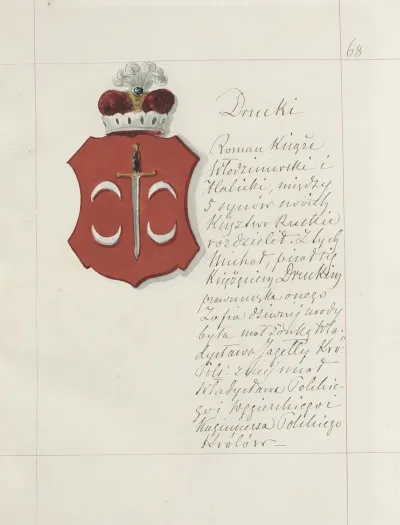 68
Drucki
Roman Książe
Włodzimirski i
Halicki, między
5 synów swoich
Księztwo Ruskie
rozdzielił. Z tych
Michał, pisał się
Książęciem Druckim
prawnuczka onego
Zofia dziwnej urody
była małżonką Wła-
dysława Jagełły Kró:
Pols: z niej miał
Władysława Polskie-
go i Węgierskiego i
Kazimierza Polskiego
Królów—